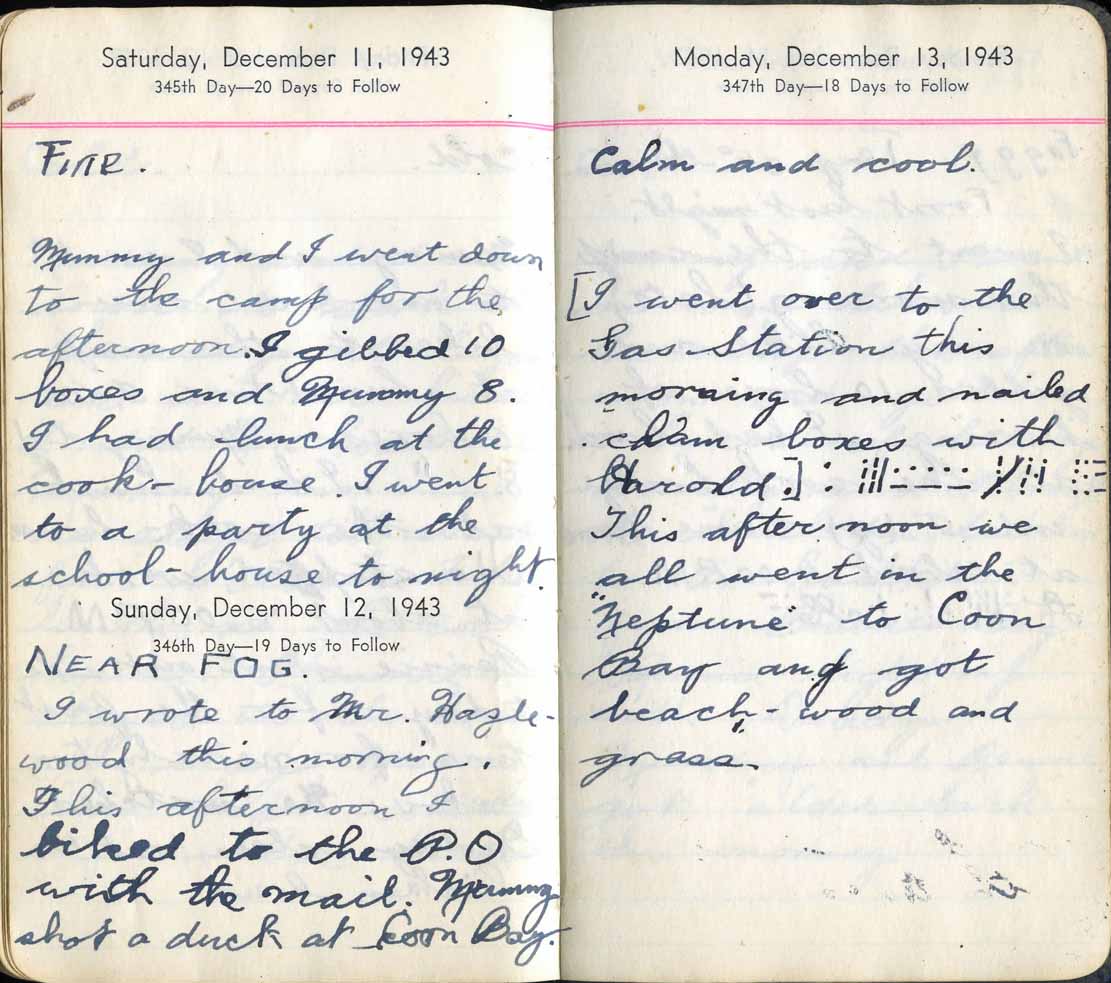 Saturday, December 11, 1943
345th Day—20 Days to Follow
FINE.
Mummy and I went down
to the camp for the
afternoon. I gibbed 10
boxes and Mummy 8.
I had lunch at the
cook-house. I went
to a party at the
school-house to night.
Sunday, December 12, 1943
346th Day—19 Days to Follow
NEAR FOG.
I wrote to Mr. Hazle-
wood this morning.
This afternoon I
biked to the P.O
with the mail. Mummy
shot a duck at Coon Bay.
Monday, December 13, 1943
347th Day—18 Days to Follow
Calm and cool.
[I went over to the
Gas Station this
morning and nailed
clam boxes with
Harold.]
This after noon we
all went in the
"Neptune" to Coon
Bay and got
beach-wood and
grass.